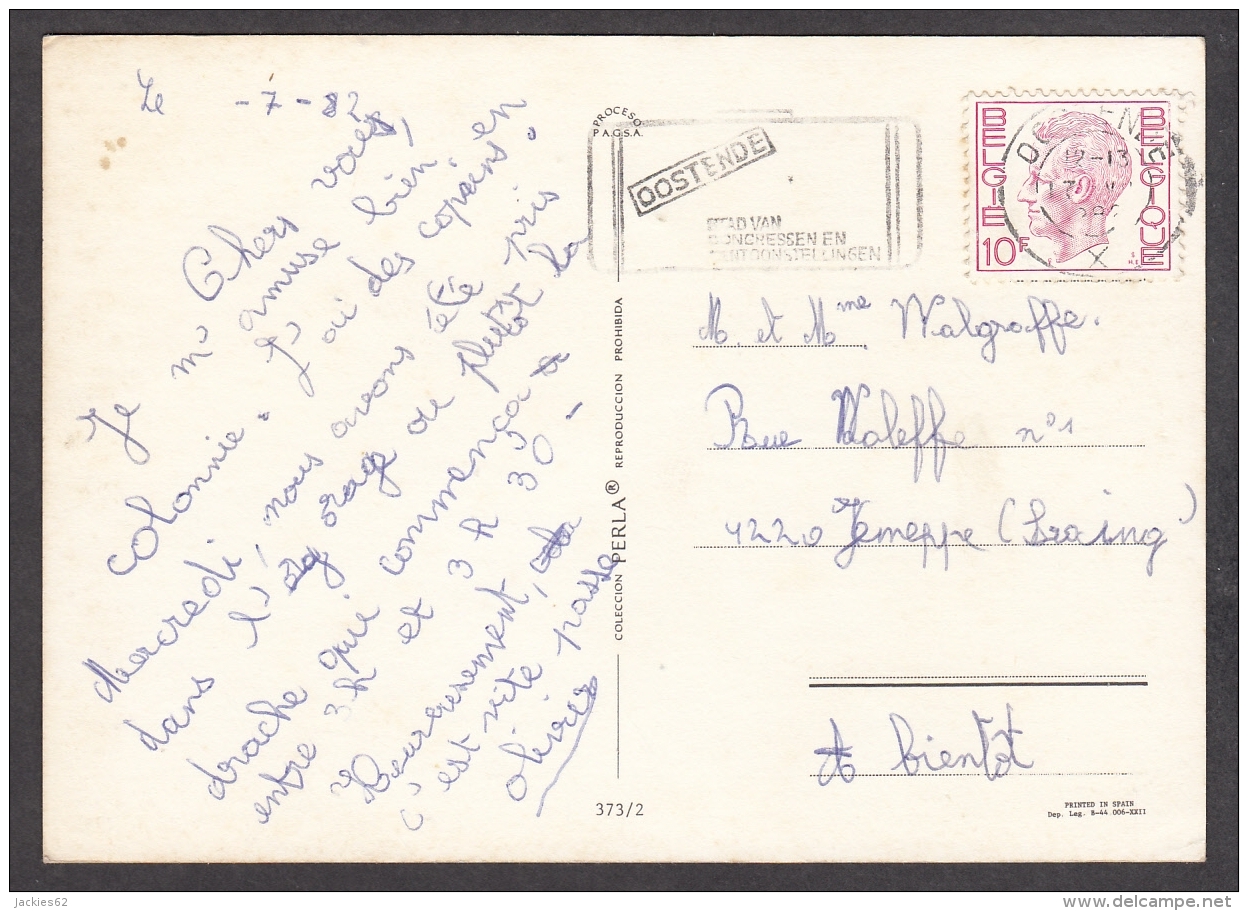 Le -7-82
Chers vous,
Je m'amuse bien en
colonnie. J'ai des copains.
Mercredi, nous avons été pris
dans l'orage ou plutôt la
drache qui commença
entre 3h et 3h30 -
Heureusement,
c'est vite passe
Olivier
PROCESO
P.A.G.S.A.
COLECCION PERLA® REPRODUCCION PROHIBIDA
373/2
OOSTENDE
STAD VAN
CONGRESSEN EN
TENTOONSTELLINGEN
BELGIE
BELGIQUE
10F
12-13
M. et Mme Walgraffe.
Rue Waleffe n°1
4220 Jemeppe (Sraing)
A bientôt
PRINTED IN SPAIN
Dep. Leg. B-44.006-XXII
Jackies62
delcampe.net